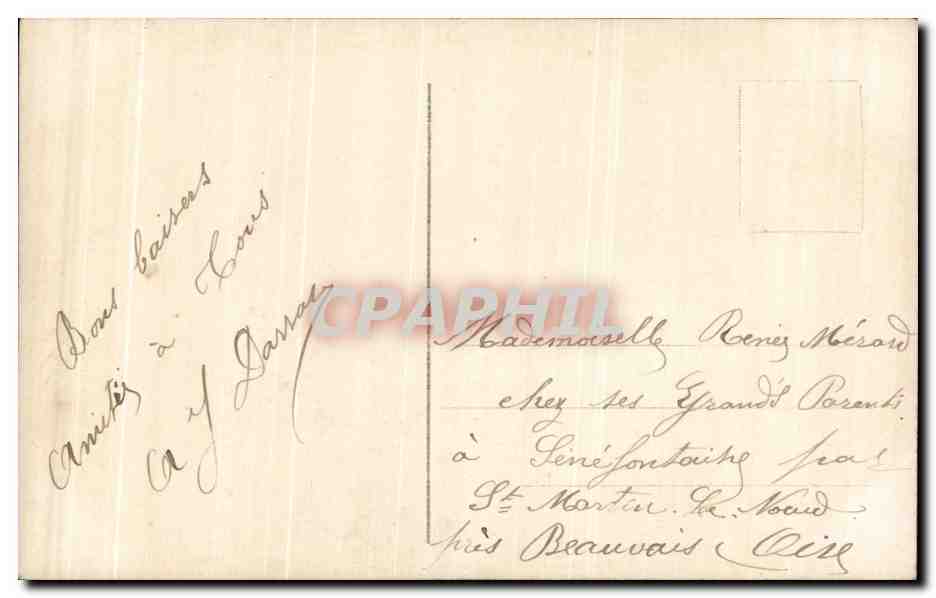 Bons baisers
Amitiés à Tous
A J Darras
CPAPHIL
Mademoiselle Renée Mérard
chez ses Grands Parents
à Sénéfontaine par
St Martin. Le. Noeud
près Beauvais Oise